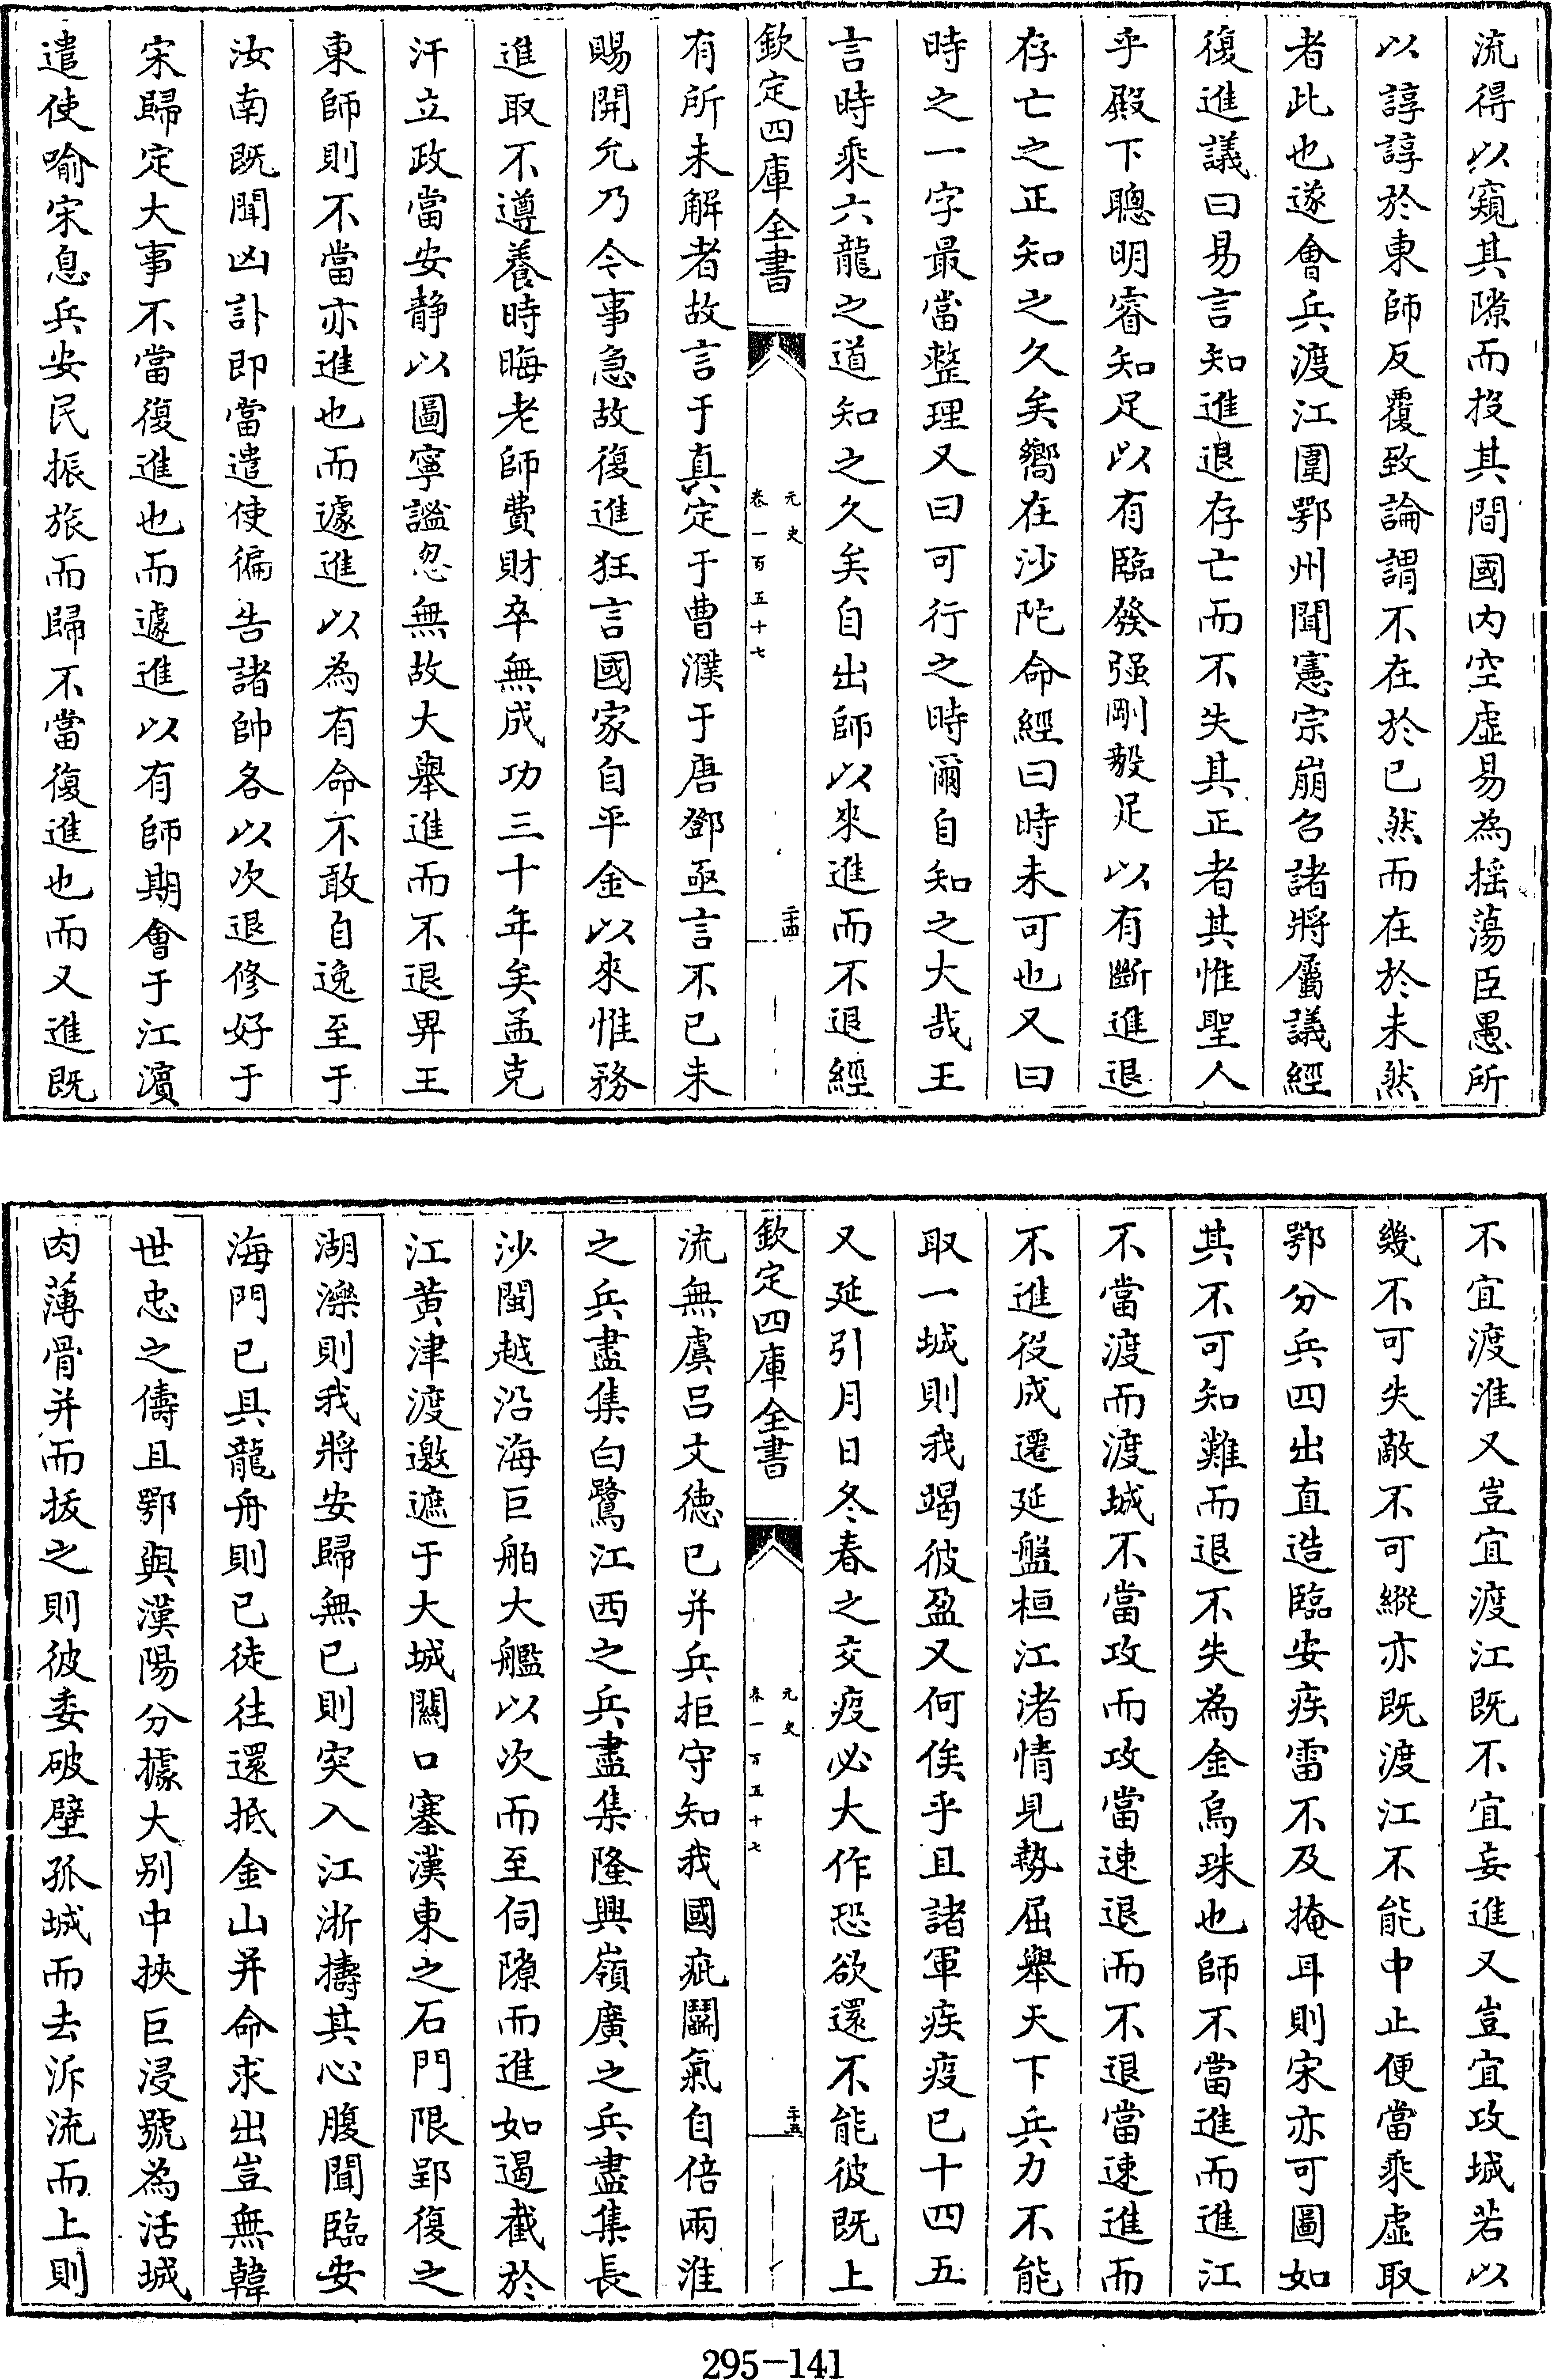 流得以窺其隙而投其間國内空虚易為摇蕩臣愚所
以諄諄於東師反覆致論謂不在於已然而在於未然
者此也遂會兵渡江圍鄂州聞憲宗崩召諸將屬議經
復進議曰易言知進退存亡而不失其正者其惟聖人
乎殿下聰明睿知足以有臨發强剛毅足以有斷進退
存亡之正知之久矣嚮在沙陀命經曰時未可也又曰
時之一字最當整理又曰可行之時爾自知之大哉王
言時乘六龍之道知之久矣自出師以來進而不退經
欽定四庫全書
元史
卷一百五十七
二十四
有所未解者故言于真定于曹濮于唐鄧亟言不已未
賜開允乃今事急故復進狂言國家自平金以來惟務
進取不遵養時晦老師費財卒無成功三十年矣孟克
汗立政當安静以圖寧謐忽無故大舉進而不退畀王
東師則不當亦進也而遽進以為有命不敢自逸至于
汝南既聞凶訃即當遣使徧告諸帥各以次退修好于
宋歸定大事不當復進也而遽進以有師期會于江濱
遣使喻宋息兵安民振旅而歸不當復進也而又進既
不宜渡淮又豈宜渡江既不宜妄進又豈宜攻城若以
幾不可失敵不可縱亦既渡江不能中止便當乘虚取
鄂分兵四出直造臨安疾雷不及掩耳則宋亦可圖如
其不可知難而退不失為金烏珠也師不當進而進江
不當渡而渡城不當攻而攻當速退而不退當速進而
不進役成遷延盤桓江渚情見勢屈舉天下兵力不能
取一城則我竭彼盈又何俟乎且諸軍疾疫已十四五
又延引月日冬春之交疫必大作恐欲還不能彼既上
欽定四庫全書
元史
卷一百五十七
二十五
流無虞吕文德已并兵拒守知我國疵鬭氣自倍兩淮
之兵盡集白鷺江西之兵盡集隆興嶺廣之兵盡集長
沙閩越沿海巨舶大艦以次而至伺隙而進如遏截於
江黄津渡邀遮于大城關口塞漢東之石門限郢復之
湖濼則我將安歸無已則突入江浙擣其心腹聞臨安
海門已具龍舟則已徒往還抵金山并命求出豈無韓
世忠之儔且鄂與漢陽分據大别中挾巨浸號為活城
肉薄骨并而拔之則彼委破壁孤城而去泝流而上則
295-141